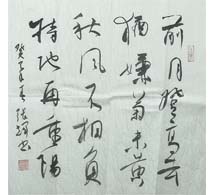 前月登高去
犹嫌菊未黄
秋风不相负
特地再重阳